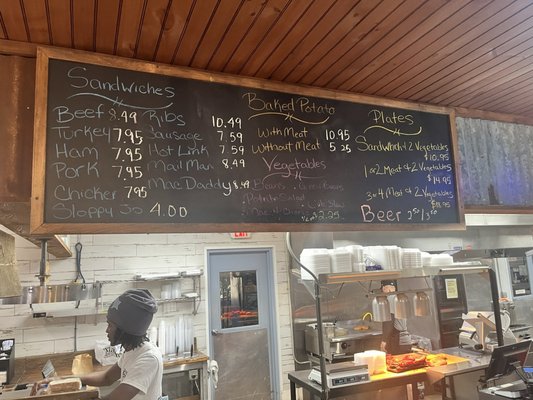 Sandwiches
Beef 8.49
Turkey 7.95
Ham 7.95
Pork 7.95
Chicken 7.95
Sloppy Joe 4.00
Ribs 10.49
Sausage 7.59
Hot Link 7.59
Mail Man 8.49
Mac Daddy 8.49
Baked Potato
With Meat 10.95
Without Meat 5.25
Vegetables
Beans Green Beans
Potato Salad
Mac & Cole Slaw
$2.25
Plates
Sandwich & 2 Vegetables
$10.95
1 or 2 Meat & 2 Vegetables
$14.95
3 or 4 Meat & 2 Vegetables
Beer